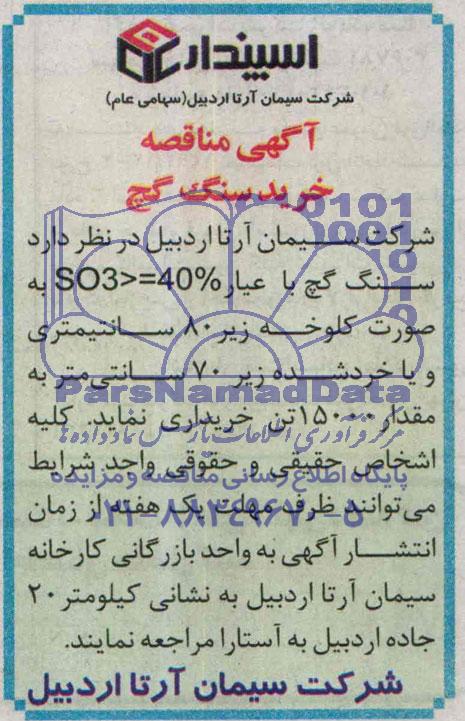 اسپندار
شرکت سیمان آرتا اردبیل(سهامی عام)
آگهی مناقصه
خرید سنگ گچ
شرکت سیمان آرتا اردبیل در نظر دارد
سنگ گچ با عیار SO3>=40% به
صورت کلوخه زیر ۸۰ سانتیمتری
و یا خردشده زیر ۷۰ سانتی‌متر به
مقدار ۱۵۰۰۰تن خریداری نماید. کلیه
اشخاص حقیقی و حقوقی واجد شرایط
می‌توانند ظرف مهلت یک هفته از زمان
انتشار آگهی به واحد بازرگانی کارخانه
سیمان آرتا اردبیل به نشانی کیلومتر ۲۰
جاده اردبیل به آستارا مراجعه نمایند.
شرکت سیمان آرتا اردبیل
ParsNamadData
مرکز فرآوری اطلاعات پارس نماد داده ها
پایگاه اطلاع رسانی مناقصه و مزایده
۰۲۱-۸۸۳۴۹۶۷۰-۵